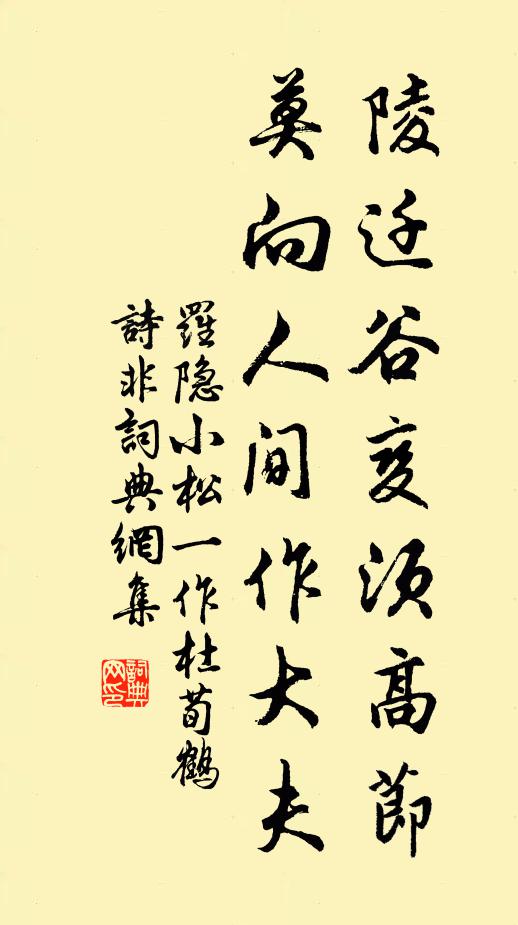 陵迁谷变须高节
莫向人间作大夫
羅隐小松一作杜荀鶴
詩非詞典網集
詞典网印